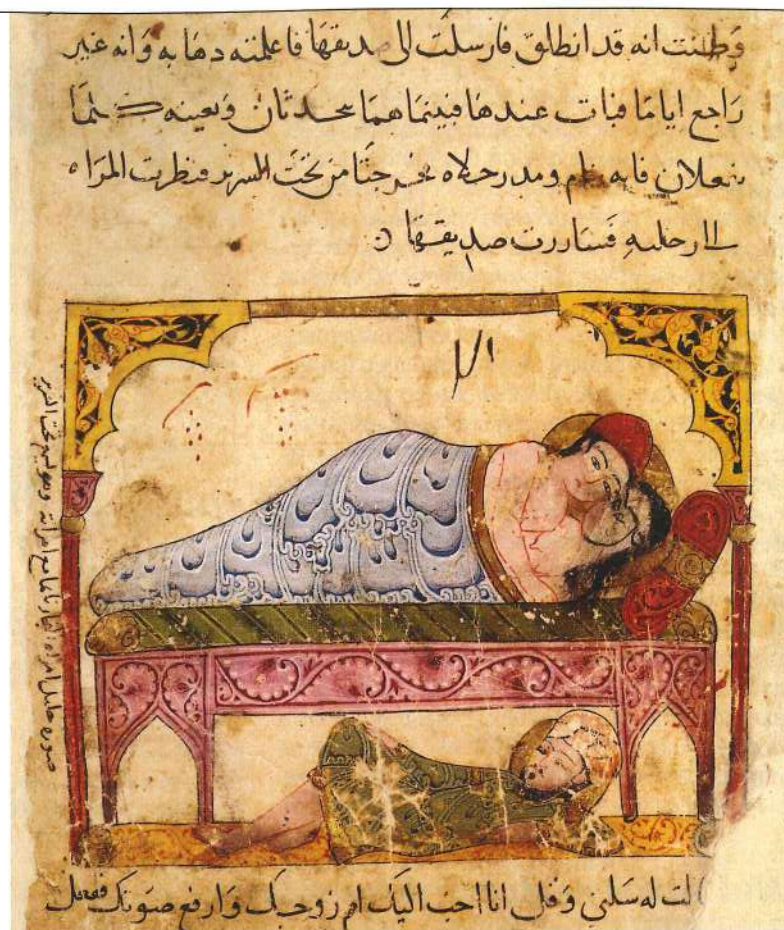 وظنت انه قد انطلق فارسلت الى صديقها فاعلمته دهابه وانه غير
راجع اياما فبات عندها فبينما هما يتحدثان وبعينه كلما
يفعلان فانه نام ومد رجلاه فخرجتا من تحت السرير فنظرت المراه
الا رجليه فساررت صديقها
صوره خليل امراه النجار نايما مع امراته وهو نايم تحت السرير
لت له سلني وقل انا احب اليك ام زوجك وارفع صوتك ففعل